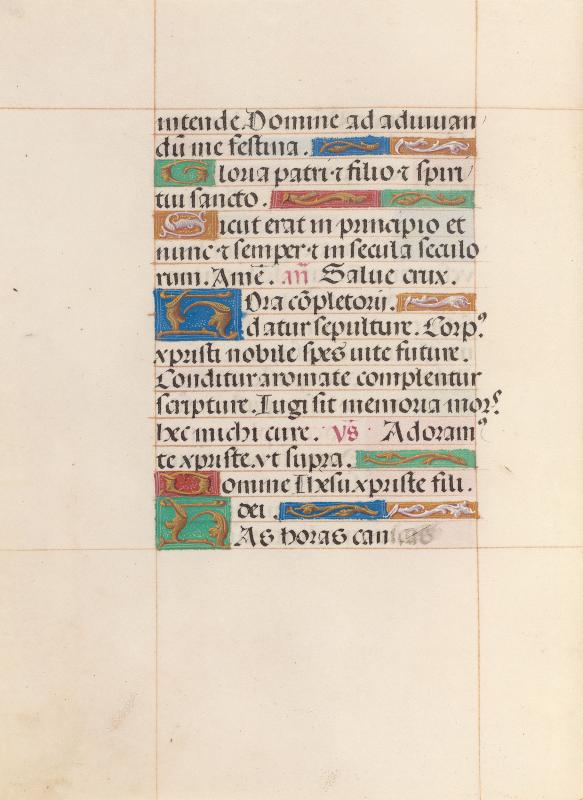 intende. Domine ad adiuuan
dū me festina.
Gloria patri ⁊ filio ⁊ spiri
tui sancto.
Sicut erat in principio et
nunc ⁊ semper ⁊ in secula seculo
rum. Amē. añ Salue crux.
Hora cōpletorii.
datur sepulture. Corpꝰ
xpristi nobile spes uite future.
Conditur aromate complentur
scripture. Iugi sit memoria morsꝰ
hec michi cure. vs̄ Adoramꝰ
te xpriste. vt supra.
Domine Ihesu xpriste fili.
dei.
Has horas can